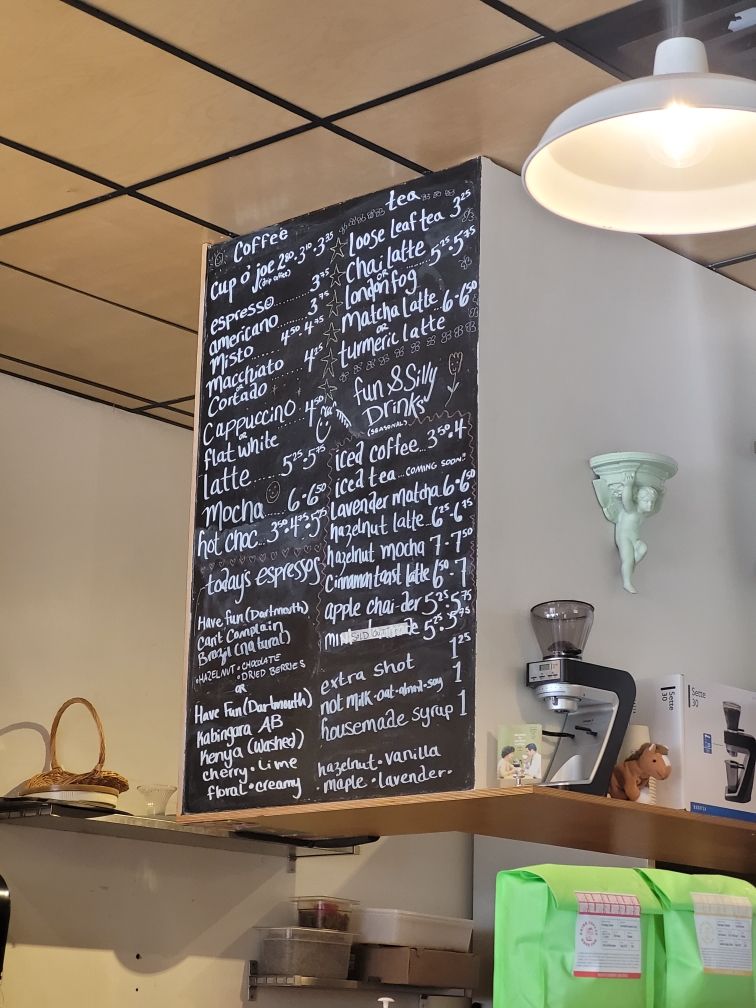 Coffee
cup o' joe 2.80 . 3.10 . 3.25
(drip coffee)
espresso........3.75
americano......3.75
Misto......4.50 4.75
Macchiato
or
Cortado 4.25
Cappuccino.4.50
or
flat white
latte......5.25.5.75
mocha...6-6.50
hot choc...3.50.4.75.5.75
today's espressos
Have fun (Dartmouth)
Can't Complain
Brazil (natural)
•HAZELNUT •CHOCOLATE
•DRIED BERRIES
or
Have Fun (Dartmouth)
Kabingara AB
Kenya (washed)
cherry • lime
floral • creamy
tea
loose leaf tea 3.25
Chai latte
or
london fog ........5.25.5.75
Matcha latte...6-6.50
or
turmeric latte
fun & Silly
Drinks
(SEASONAL)
iced coffee...3.50.4
iced tea...COMING SOON!!
lavender matcha 6-6.50
hazelnut latte...6.25-6.75
hazelnut mocha 7-7.50
cinnamon toast latte 6.50-7
apple chai-der 5.25.5.75
SOLD OUT 5.25.5.75
extra shot 1.25
not milk-oat-almd-soy 1
housemade syrup 1
hazelnut • vanilla
• maple • lavender •
Sette
30
Sette
30